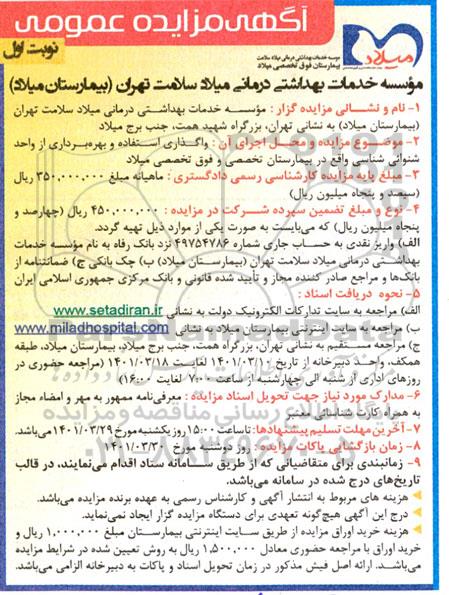 آگهی مزایده عمومی
نوبت اول
میلاد
موسسه خدمات بهداشتی درمانی میلاد سلامت
بیمارستان فوق تخصصی میلاد
مؤسسه خدمات بهداشتی درمانی میلاد سلامت تهران (بیمارستان میلاد)
۱- نام و نشانی مزایده گزار : مؤسسه خدمات بهداشتی درمانی میلاد سلامت تهران
(بیمارستان میلاد) به نشانی تهران، بزرگراه شهید همت، جنب برج میلاد
۲- موضوع مزایده و محل اجرای آن : واگذاری استفاده و بهره‌برداری از واحد
شنوائی شناسی واقع در بیمارستان تخصصی و فوق تخصصی میلاد
۳- مبلغ پایه مزایده کارشناسی رسمی دادگستری : ماهیانه مبلغ ۳۵۰,۰۰۰,۰۰۰ ریال
(سیصد و پنجاه میلیون ریال)
۴- نوع و مبلغ تضمین سپرده شرکت در مزایده : ۴۵۰,۰۰۰,۰۰۰ ریال (چهارصد و
پنجاه میلیون ریال) که می‌بایست به صورت یکی از موارد ذیل تهیه گردد.
الف) واریز نقدی به حساب جاری شماره ۴۹۷۵۴۷۸۶ نزد بانک رفاه به نام مؤسسه خدمات
بهداشتی درمانی میلاد سلامت تهران (بیمارستان میلاد) ب) چک بانکی ج) ضمانتنامه از
بانک‌ها و مراجع صادر کننده مجاز و تأیید شده قانونی و بانک مرکزی جمهوری اسلامی ایران
۵- نحوه دریافت اسناد :
الف) مراجعه به سایت تدارکات الکترونیک دولت به نشانی www.setadiran.ir
ب) مراجعه به سایت اینترنتی بیمارستان میلاد به نشانی www.miladhospital.com
ج) مراجعه مستقیم به نشانی تهران، بزرگراه همت، جنب برج میلاد، بیمارستان میلاد، طبقه
همکف، واحد دبیرخانه از تاریخ ۱۴۰۱/۰۳/۱۰ لغایت ۱۴۰۱/۰۳/۱۸ (مراجعه حضوری در
روزهای اداری از شنبه الی چهارشنبه از ساعت ۷:۰۰ لغایت ۱۶:۰۰)
۶- مدارک مورد نیاز جهت تحویل اسناد مزایده : معرفی‌نامه ممهور به مهر و امضاء مجاز
به همراه کارت شناسائی معتبر
۷- آخرین مهلت تسلیم پیشنهادها: تا ساعت ۱۵:۰۰ روز یکشنبه مورخ ۱۴۰۱/۰۳/۲۹ می‌باشد.
۸- زمان بازگشایی پاکات مزایده : روز دوشنبه مورخ ۱۴۰۱/۰۳/۳۰
۹- زمانبندی برای متقاضیانی که از طریق سامانه ستاد اقدام می‌نمایند، در قالب
تاریخ‌های درج شده در سامانه می‌باشد.
هزینه های مربوط به انتشار آگهی و کارشناس رسمی به عهده برنده مزایده می‌باشد.
درج این آگهی هیچ‌گونه تعهدی برای دستگاه مزایده گزار ایجاد نمی‌نماید.
هزینه خرید اوراق مزایده از طریق سایت اینترنتی بیمارستان مبلغ ۱,۰۰۰,۰۰۰ ریال و
خرید اوراق با مراجعه حضوری معادل ۱,۵۰۰,۰۰۰ ریال به روش تعیین شده در شرایط مزایده
می‌باشد. ارائه اصل فیش مذکور در زمان تحویل اسناد و پاکات به دبیرخانه الزامی می‌باشد.